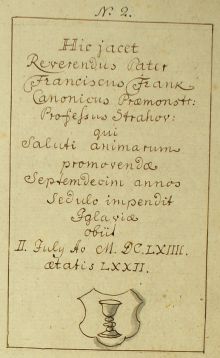 N: 2.
Hic jacet
Reverendus Pater
Franciscus Frank
Canonicus Præmonstr:
Professus Strahov:
qui
Saluti animarum
promovendæ
Septemdecim annos
Sedulo impendit
Iglaviæ
obiit
II. July Ao M. DC. LXIIII.
ætatis LXXII.